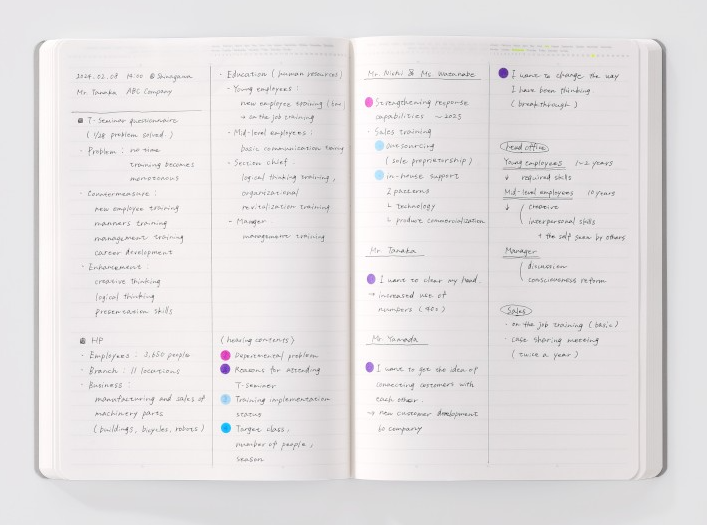 2024.02.08 14:00 @Shinagawa
Mr. Tanaka ABC Company
T-Seminar questionnaire
(1/28 problem solved.)
・Problem : no time
training becomes
monotonous
・Countermeasure :
new employee training
manners training
management training
career development
・Enhancement :
creative thinking
logical thinking
presentation skills
HP
・Employees : 3,650 people
・Branch : 11 locations
・Business :
manufacturing and sales of
machinery parts
(buildings, bicycles, robots)
・Education (human resources)
- Young employees :
new employee training
→ on the job training
- Mid-level employees :
basic communication
- Section chief :
logical thinking training,
organizational
revitalization training
- Manager
management training
(hearing contents)
Departmental problem
Reasons for attending
T-Seminar
Training implementation
status
Target class,
number of people,
season
Mr. Nishi & Ms. Watanabe
Strengthening response
capabilities ~2025
Sales training
Outsourcing
(sole proprietorship)
in-house support
2 patterns
└ technology
└ product commercialization
Mr. Tanaka
I want to clear my head.
→ increased use of
numbers
Mr. Yamada
I want to get the idea of
connecting customers with
each other.
→ new customer development
by company
I want to change the way
I have been thinking
(breakthrough)
Head office
Young employees 1~2 years
↓ required skills
Mid-level employees 10 years
↓ creative
interpersonal skills
+ the self seen by others
Manager
discussion
consciousness reform
Sales
・on the job training (basic)
・case sharing meeting
(twice a year)